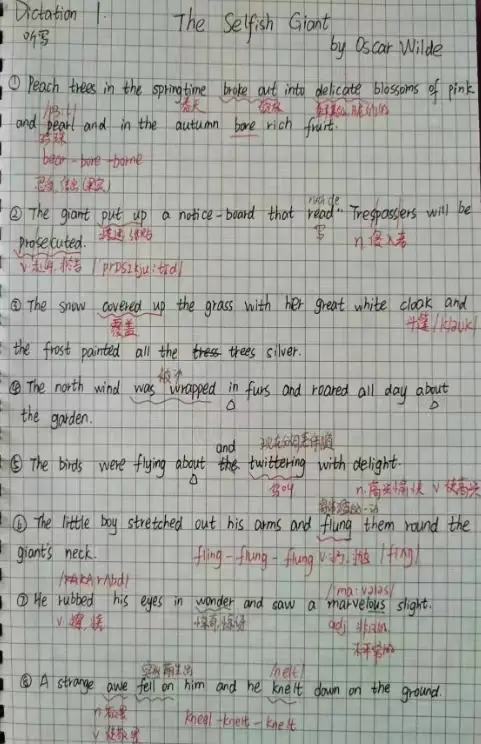 Dictation 1.
听写
The Selfish Giant
by Oscar Wilde
① Peach trees in the springtime broke out into delicate blossoms of pink
春天
and pearl and in the autumn bore rich fruit.
bear - bore - borne
② The giant put up a notice-board that read: "Trespassers will be
写
n 侵入者
prosecuted.
③ The snow covered up the grass with her great white cloak and
覆盖
斗篷
the frost painted all the tress trees silver.
④ The north wind was wrapped in furs and roared all day about
the garden.
and
⑤ The birds were flying about the twittering with delight.
n. 高兴愉快 v 使高兴
⑥ The little boy stretched out his arms and flung them round the
giant's neck.
fling - flung - flung
⑦ He rubbed his eyes in wonder and saw a marvelous slight.
adj
/nelt/
⑧ A strange awe fell on him and he knelt down on the ground.
kneel - knelt - knelt